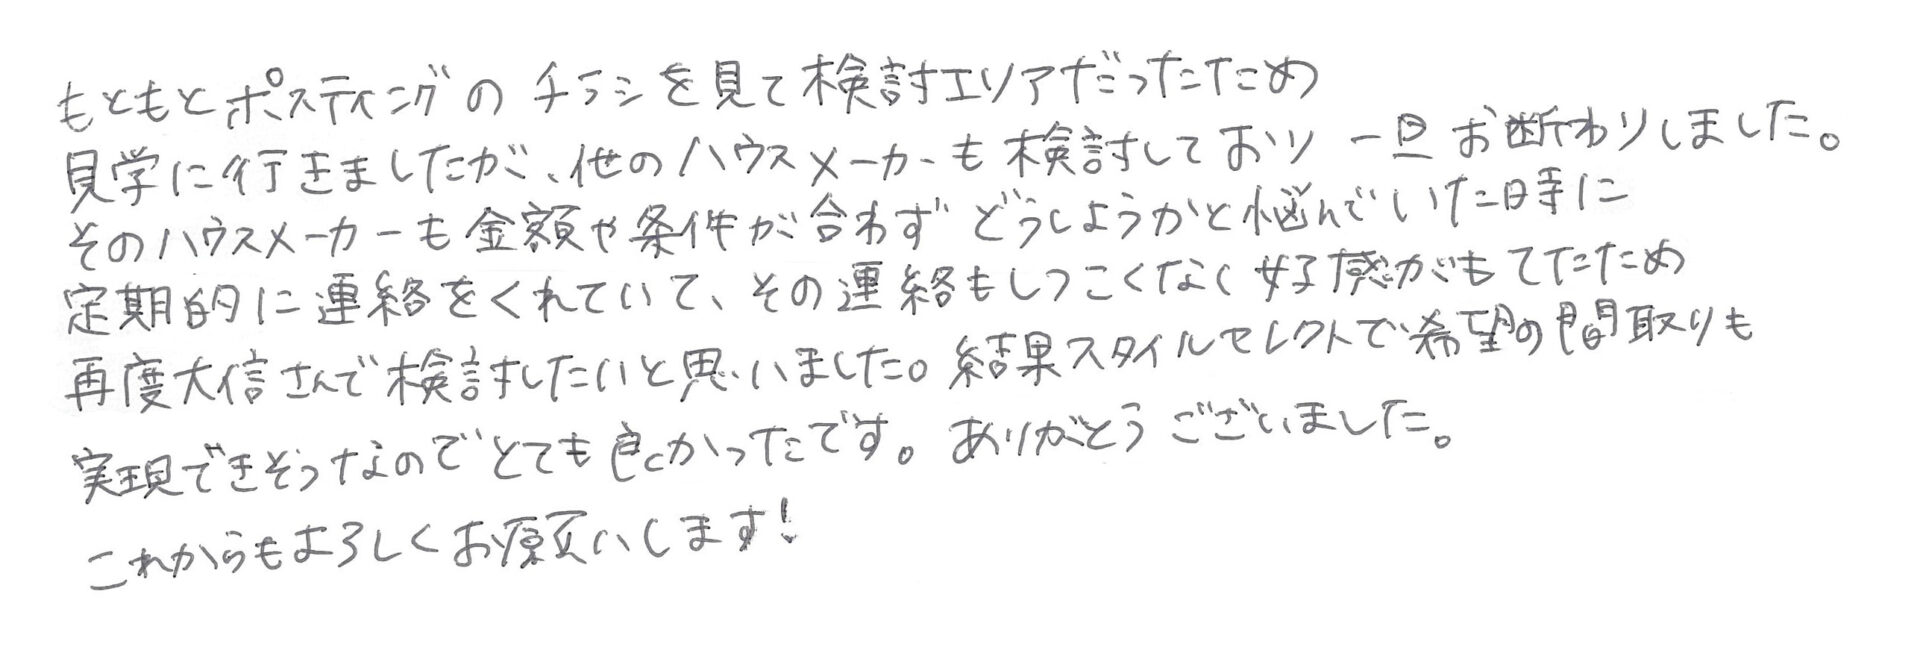 もともとポスティングのチラシを見て検討エリアだったため
見学に行きましたが、他のハウスメーカーも検討しており 一旦お断わりしました。
そのハウスメーカーも金額や条件が合わず どうしようかと悩んでいた時に
定期的に連絡をくれていて、その連絡もしつこくなく好感がもてたため
再度大信さんで検討したいと思いました。結果スタイルセレクトで希望の間取りも
実現できそうなのでとても良かったです。ありがとうございました。
これからもよろしくお願いします!